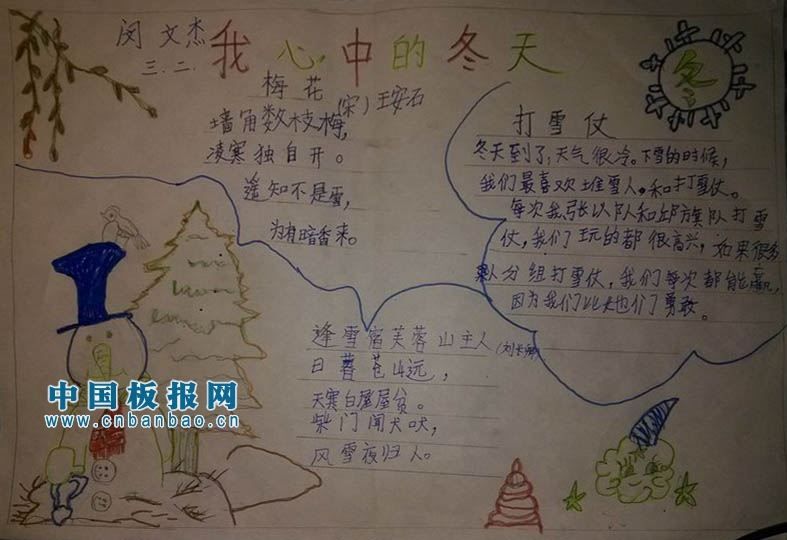 我心中的冬天
闵文杰
三.二.
梅花
(宋)王安石
墙角数枝梅,
凌寒独自开。
遥知不是雪,
为有暗香来。
冬
打雪仗
冬天到了,天气很冷。下雪的时候,
我们最喜欢堆雪人。和打雪仗。
每次我张以队和邱旗队打雪
仗,我们玩的都很高兴,如果很多
人分组打雪仗,我们每次都能赢,
因为我们比他们勇敢。
逢雪宿芙蓉山主人
(刘长卿)
日暮苍山远,
天寒白屋屋贫。
柴门闻犬吠,
风雪夜归人。
中国板报网
www.cnbanbao.cn